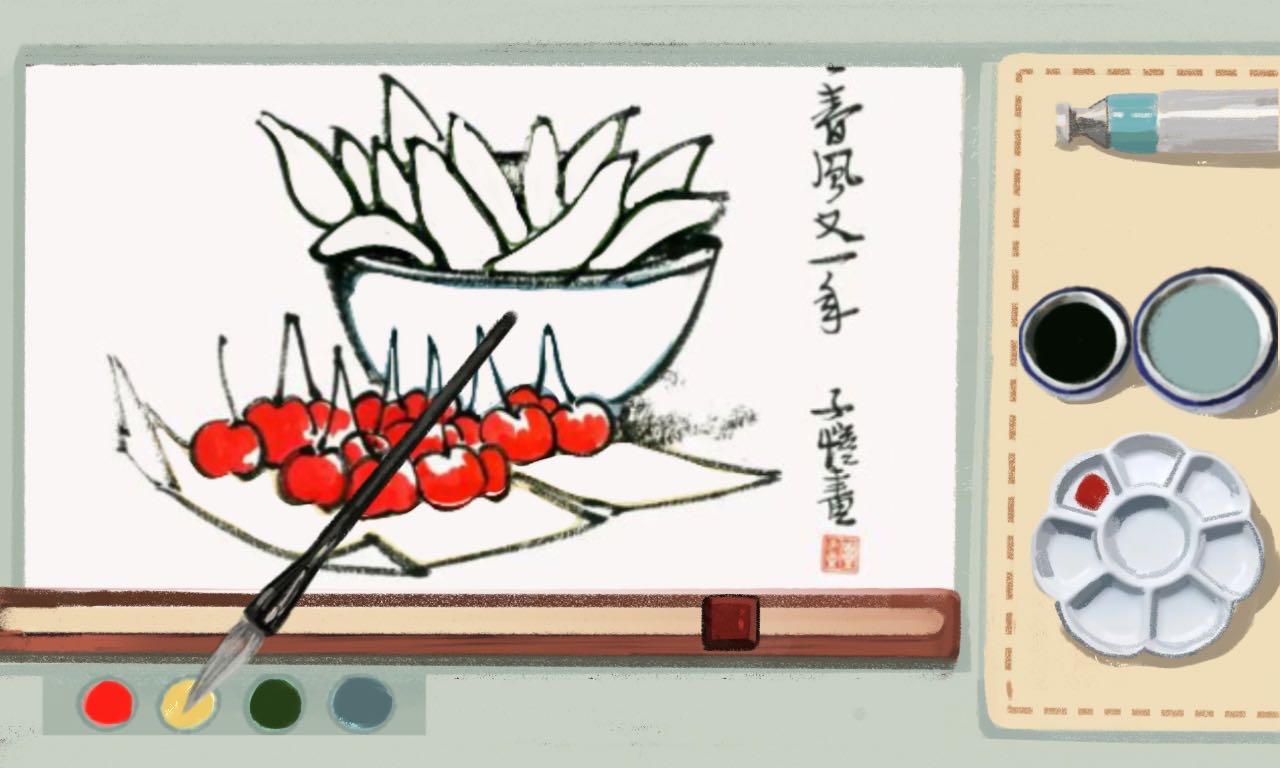 春風又一年 子愷畫